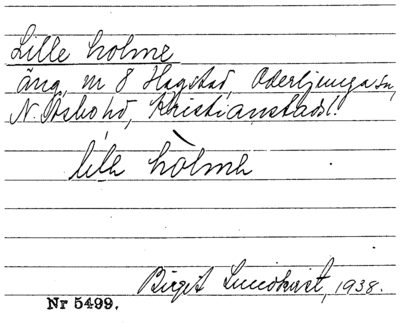 Lille holme
äng, m 8 Hagstad, Oderljunga sn,
N. Åsbo hd, Kristianstads l.
lilə hòlmə
Birgit Lundkvist, 1938.
Nr 5499.